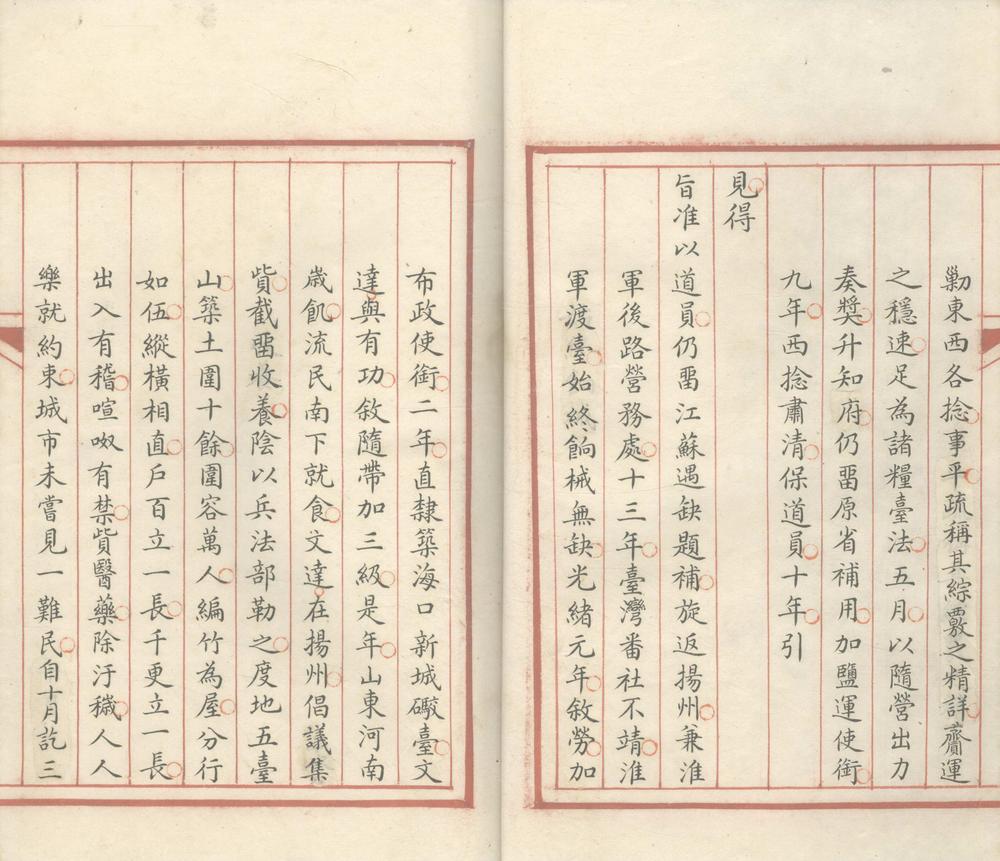 勦東西各捻事平疏稱其綜覈之精詳齎運
之穩速足為諸糧臺法五月以隨營出力
奏獎升知府仍畱原省補用加鹽運使銜
九年西捻肅清保道員十年引
見得
旨准以道員仍畱江蘇遇缺題補旋返揚州兼淮
軍後路營務處十三年臺灣番社不靖淮
軍渡臺始終餉械無缺光緒元年敘勞加
布政使銜二年直隸築海口新城礮臺文
達與有功敘隨帶加三級是年山東河南
歲飢流民南下就食文達在揚州倡議集
貲截畱收養陰以兵法部勒之度地五臺
山築土圍十餘圍容萬人編竹為屋分行
如伍縱橫相直戶百立一長千更立一長
出入有稽喧呶有禁貲醫藥除汙穢人人
樂就約束城市未嘗見一難民自十月訖三